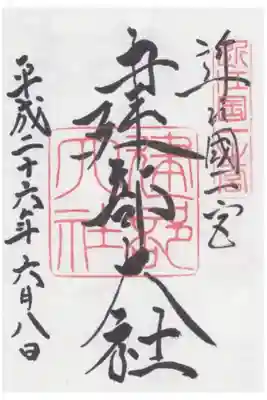 近江國一宮
建部大社
平成二十六年六月八日
建部
大社